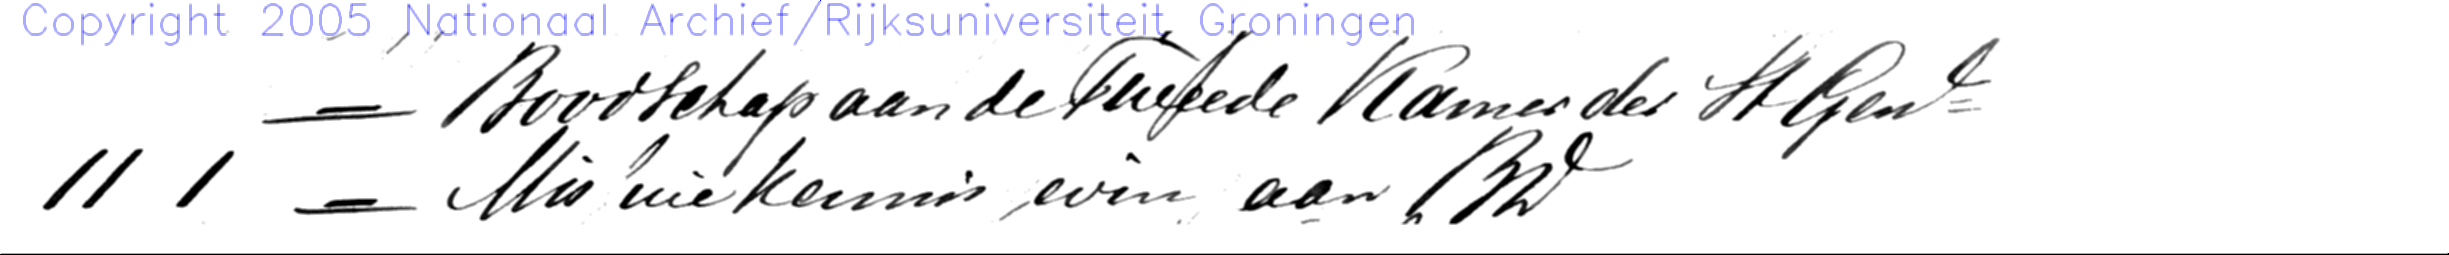 Copyright 2005 Nationaal Archief/Rijksuniversiteit Groningen
— Boodschap aan de Tweede Kamer der St Genl
11 1 — Mis kennis aan